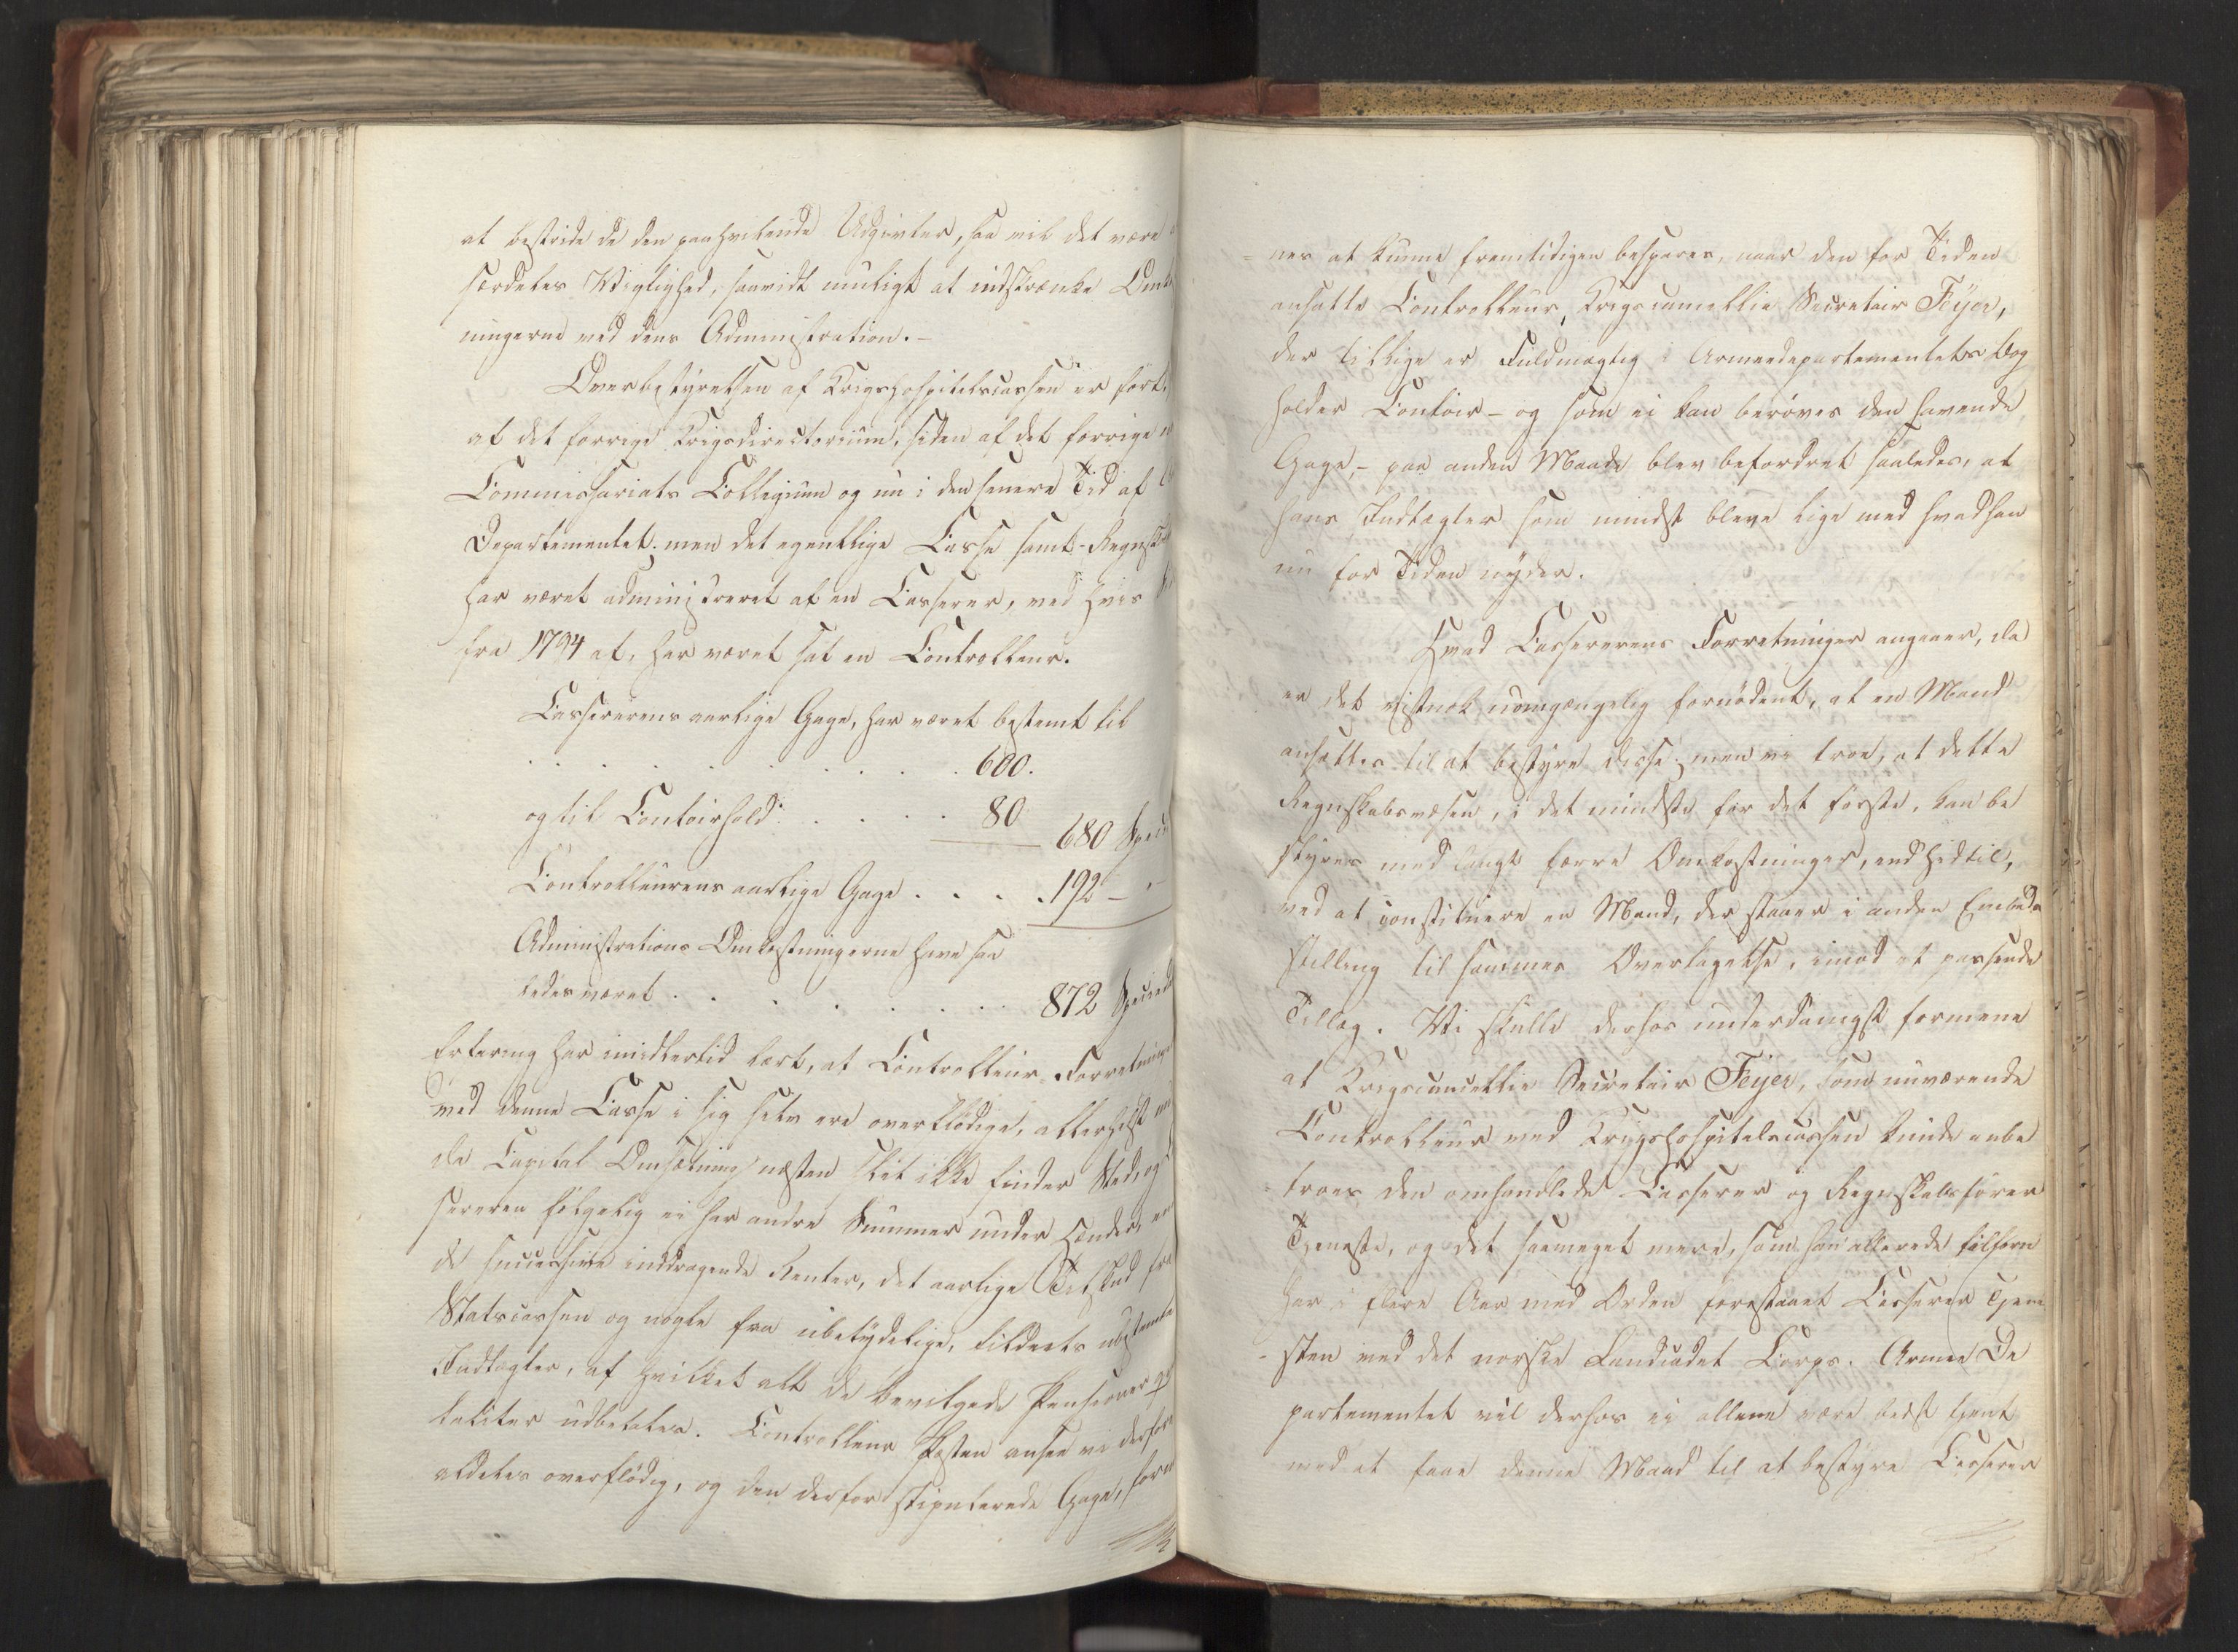 at bestride de den paahvilende Udgivter, saa vil det være
særdeles Wigtighed, saavidt muligt at indskrænke Omk
ningerne ved dens Administration.-
Overbestyrelsen af Krigshospitalscassen er ført
af det forrige Krigsdirectorium, siden af det forrige
Commissariats Collegium og nu i den senere Tid af
Departementet; men det egentlige Casse samt-Regnsk
har været administreret af en Casserer, ved hvis
fra 1794 af, har været sat en Controlleur.
Cassererens aarlige Gage, har været bestemt til
. . . . . . . . . . 600.
og til Contoirhold: . . . . . 80
680 Speci
Controlleurens aarlige Gage . . . . 192 - -
Administrations Omkostningerne have saa
ledes været . . . . . . . . 872 Specied
Erfaring har imidlertid lært, at Controlleur-Forretninge
ved denne Casse i sig selv ere overflødige, allerhelst
da Capital Omsætning næsten slet ikke finder Sted, og
sereren følgelig ei har andre Summer under Hænder, en
de successive inddragende Renter, det aarlige Tilskud fra
Statscassen og nogle faa ubetydelige, tildeels ubestemte
Indtægter, af hvilket alt de bevilgede Pensioner q
taliter udbetales. Controlleur Posten ansee vi derfor
aldeles overflødig, og den derfor stipulerede Gage, form
=nes at kunne fremtidigen bespares, naar den for Tiden
ansatte Controlleur, Krigscancellie Secretair Feyer,
der tillige er Fuldmægtig i Armeedepartementets Bog
holder Contoir - og som ei kan berøves den havende
Gage, - paa anden Maade blev befordret saaledes, at
hans Indtægter som mindst bleve lige med hvad han
nu for Tiden nyder.
Hvad Cassererens Forretninger angaaer, da
er det vistnok uomgængelig fornødent, at en Mand
ansættes til at bestyre disse; men vi troe, at dette
Regnskabsvæsen, i det mindste for det første, kan be
styres med langt færre Omkostninger, end hidtil,
ved at constituere en Mand, der staaer i anden Embeds
stilling til sammes Overtagelse, imod et passende
Tillæg. Wi skulle derhos underdanigst formene
at Krigscancellie Secretair Feyer, som nuværende
Controlleur ved Krigshospitalscassen kunde anbe
=troes den omhandlede Casserer og Regnskabsfører
Tjeneste, og det saameget mere, som han allerede tilforn
har i flere Aar med Orden forestaaet Casserer Tjene
-sten ved det norske Landcadet Corps. Armee De
partementet vil derhos ei allene være bedst tjent
med at faae denne Mand til at bestyre Casserer